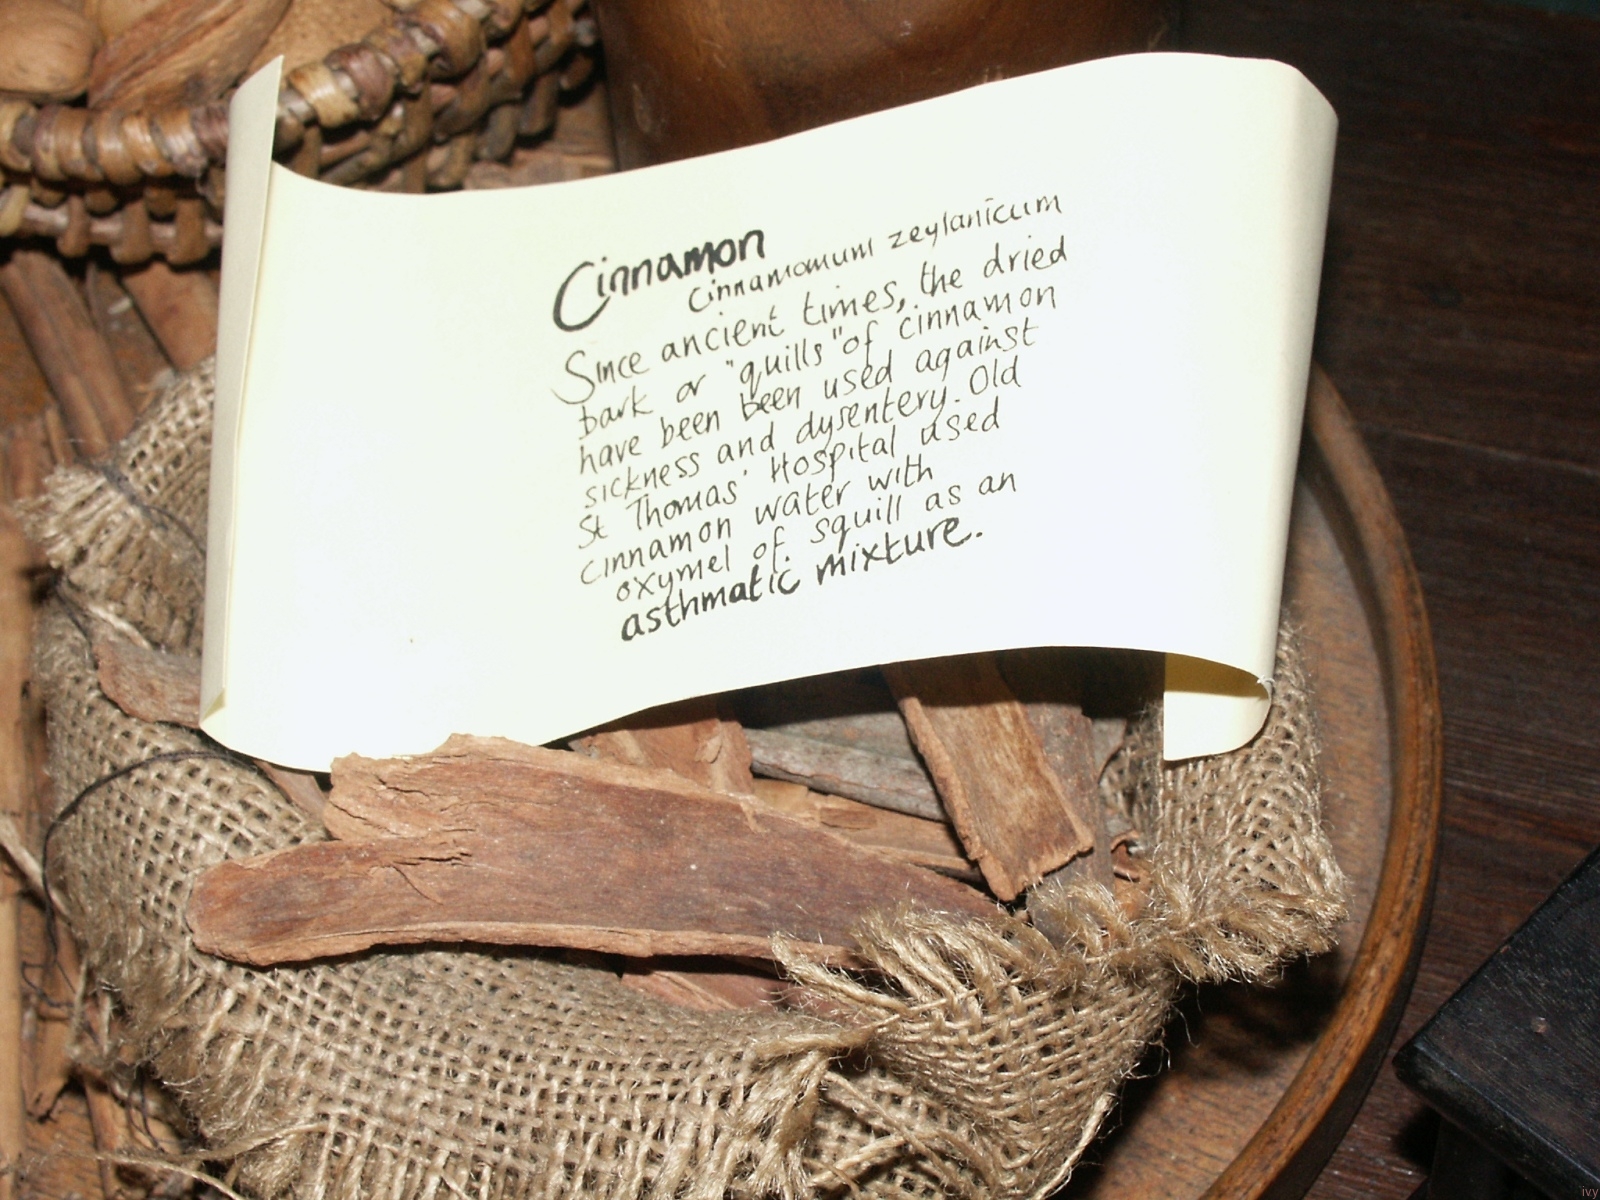 Cinnamon
Cinnamomum zeylanicum
Since ancient times, the dried
bark or "quills" of cinnamon
have been been used against
sickness and dysentery. Old
St Thomas' Hospital used
cinnamon water with
oxymel of squill as an
asthmatic mixture.
ivy